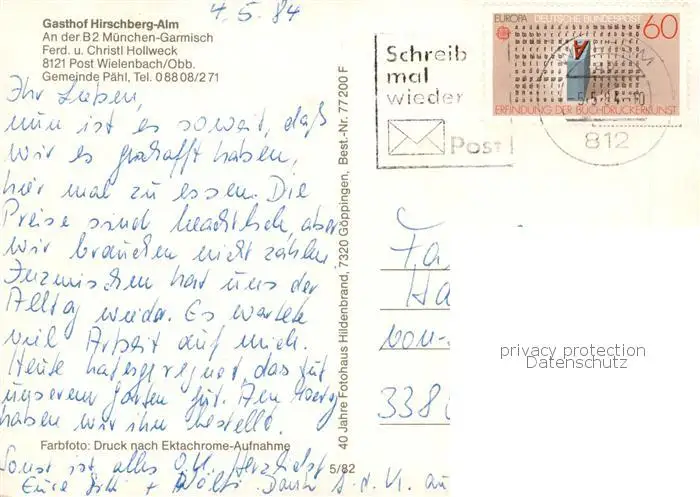 4.5.84
Gasthof Hirschberg-Alm
An der B2 München-Garmisch
Ferd. u. Christl Hollweck
8121 Post Wielenbach/Obb.
Gemeinde Pähl, Tel. 0 88 08/2 71
Ihr Lieben,
nun ist es soweit, daß
wir es geschafft haben,
hier mal zu essen. Die
Preise sind beachtlich, aber
wir brauchen nicht zahlen.
Inzwischen hat uns der
Alltag wieder. Es wartete
viel Arbeit auf mich.
Heute hat es geregnet, das tut
unserem Garten gut. Am
haben wir ihn bestellt.
Farbfoto: Druck nach Ektachrome-Aufnahme
Sonst ist alles O.K. Herzlichst
Eure + Dank
5/82
40 Jahre Fotohaus Hildenbrand, 7320 Göppingen, Best.-Nr. 77 200 F
Schreib
mal
wieder
Post
EUROPA DEUTSCHE BUNDESPOST 60
A
ERFINDUNG DER BUCHDRUCKERKUNST
812
Fa
Ha
von-
338
privacy protection
Datenschutz